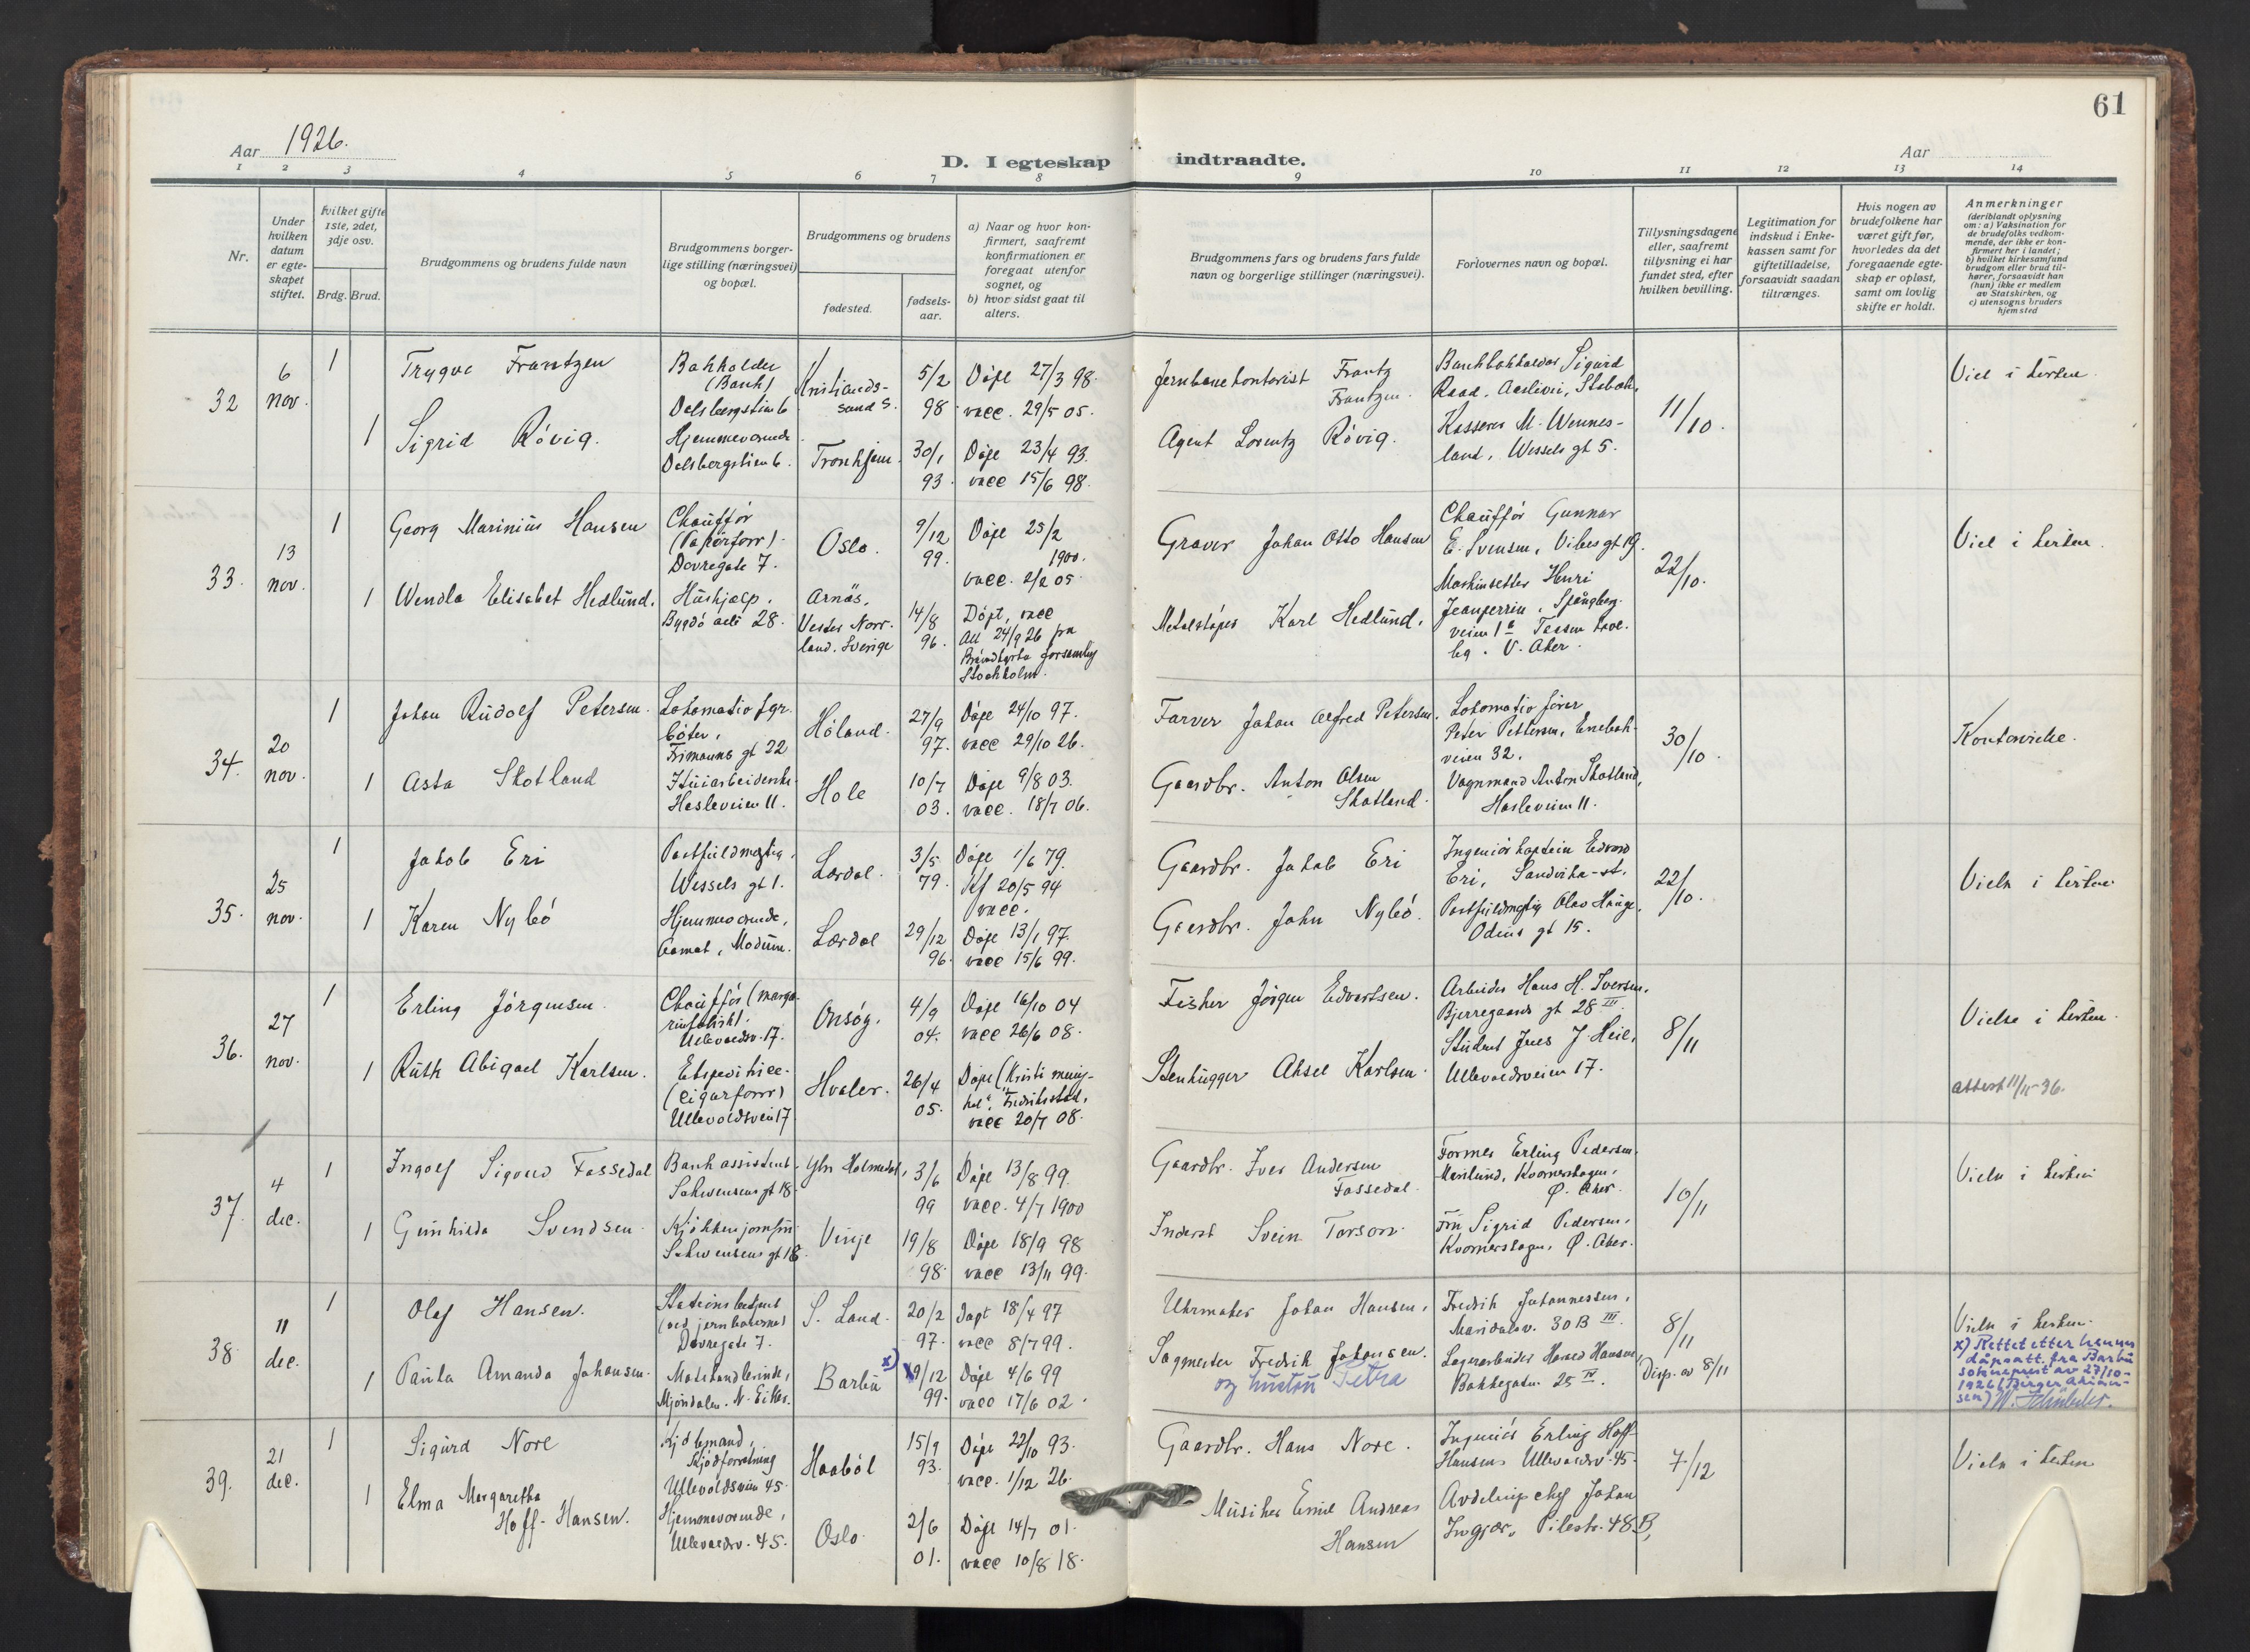 61
Aar 1926.
Aar
D. I egteskap indtraadte.
1 2 3 4 5 6 7 8 9 10 11 12 13 14
Nr.
Under hvilken datum er egte-skapet stiftet.
Hvilket gifte 1ste, 2det, 3dje osv.
Brdg. Brud.
Brudgommens og brudens fulde navn
Brudgommens borger-lige stilling (næringsvei) og bopæl.
Brudgommens og brudens
fødested.
fødsels-aar.
a) Naar og hvor kon-firmert, saafremt konfirmationen er foregaat utenfor sognet, og
b) hvor sidst gaat til alters.
Brudgommens fars og brudens fars fulde navn og borgerlige stillinger (næringsvei).
Forlovernes navn og bopæl.
Tillysningsdagene eller, saafremt tillysning ei har fundet sted, efter hvilken bevilling.
Legitimation for indskud i Enke-kassen samt for giftetilladelse, forsaavidt saadan tiltrænges.
Hvis nogen av brudefolkene har været gift før, hvorledes da det foregaaende egte-skap er opløst, samt om lovlig skifte er holdt.
Anmerkninger
(deriblandt oplysning om: a) Vaksination for de brudefolks vedkom-mende, der ikke er kon-firmert her i landet; b) hvilket kirkesamfund brudgom eller brud til-hører, forsaavidt han (hun) ikke er medlem av Statskirken, og c) utensogns bruders hjemsted
32
6 nov.
1
Trygve Frantzen
Bokholder
(Bank)
Dalsbergstien 6
Kristiands-
sand S.
5/2
98
Døpt 27/3 98.
vacc. 29/5 05.
Jernbanekontorist Frantz
Frantzen.
Bankbokholder Sigurd
11/10.
1
Sigrid Røvig.
Hjemmeværende
Dalsbergstien 6.
Tronhjem
30/1
93.
Døpt 23/4 93.
vacc 15/6 98.
Agent Lorentz Røvig.
Kasserer M. Wennes-
land, Wessels gt 5.
33.
13 nov.
1
Georg Marinius Hansen
Chauffør
Dovregate 7.
Oslo.
9/12
99.
Døpt 25/2
1900.
Graver Johan Otto Hansen
Chauffør Gunnar
E. Svensen, Vibes gt 19.
22/10.
1
Wendla Elisabet Hedlund.
Hushjælp.
Bygdø allé 28.
Arnäs,
Vester Norr-
land. Sverige
14/8
96.
Døpt, vacc
Att 24/9 26 fra
Stockholm.
Metalstøper Karl Hedlund.
Maskinsetter Henri
Jeanperrin,
V. Aker.
34.
20 nov.
1
Johan Rudolf Petersen.
Frimanns gt 22
Høland.
27/9
97.
Døpt 24/10 97.
vacc 29/10 26.
Farver Johan Alfred Petersen.
Lokomotivfører
Peter Pettersen, Enebak-
veien 32.
30/10.
1
Asta Skotland
Hasleveien 11.
Hole
10/7
03.
Døpt 9/8 03.
vacc. 18/7 06.
Gaardbr. Anton Olsen
Skotland.
Vognmand Anton Skotland,
Hasleveien 11.
35.
25 nov.
1
Jakob Eri
Postfuldmægtig,
Wessels gt 1.
Lærdal.
3/5
79.
Døpt 1/6 79.
Kf 20/5 94
vacc.
Gaardbr. Jakob Eri
Ingeniørkaptein Edvard
Eri, Sandvika-st.
22/10.
Vielse i kirken
1
Karen Nybø
Hjemmeværende,
Aamot, Modum.
Lærdal
29/12
96.
Døpt 13/1 97.
vacc 15/6 99.
Gaardbr. John Nybø.
Postfuldmægtig Olav Hauge,
Odins gt 15.
36.
27 nov.
1
Erling Jørgensen.
Chauffør (marga-
rinfabrik).
Ullevoldsv. 17.
Onsøy.
4/9
04.
Døpt 16/10 04
vacc 26/6 08.
Fisker Jørgen Edvartsen.
Arbeider Hans H. Iversen,
Bjerregaards gt 28 III
8/11
Vielse i kirken.
1
Ruth Abigael Karlsen.
Ekspeditrice.
(Cigarforr)
Ullevoldsveien 17
Hvaler.
26/4
05.
Fredrikstad,
vacc 20/7 08.
Stenhugger Aksel Karlsen.
Ullevoldsveien 17.
37.
4 dec.
1
Ingolf Sigurd Fossedal
Bankassistent.
Schwensens gt 18.
Ytre Holmedal,
3/6
99
Døpt 13/8 99.
vacc. 4/7 1900
Gaardbr. Iver Andersen
Fossedal.
Former Erling Pedersen.
Ø. Aker.
10/11
Vielse i kirken
1
Gunhilda Svendsen.
Schwensens gt 18.
Vinje
19/8
98.
Døpt 18/9 98
vacc 13/11 99.
Inderst Svein Torson.
Fru Sigrid Pedersen,
Ø. Aker.
38.
11 dec.
1
Olaf Hansen.
Stationsbetjent
(ved jernbanerne)
Dovregate 7.
S. Land.
20/2
97.
Døpt 18/4 97
vacc 8/7 99.
Uhrmaker Johan Hansen,
Fredrik Johannessen,
Maridalsv. 30B III.
8/11
Vielse i kirken.
1
Paula Amanda Johansen.
Motehandlerinde,
Mjøndalen. N. Eiker.
Barbu
x) 9/12
99.
Døpt 4/6 99
vacc 17/6 02.
Sagmester Fredrik Johansen.
og hustru Petra
Lagerarbeider Harald Hansen,
Bakkegaten 25 IV.
Disp. av 8/11
x) Rettet etter hennes
dåpsatt. fra Barbu
sokneprest av 27/10-
39.
21 dec.
1
Sigurd Nore
Kjøbmand,
Kjødforretning
Ullevoldsveien 45.
Haabøl
15/9
93.
Døpt 22/10 93.
vacc. 1/12 26.
Gaardbr. Hans Nore.
Ingeniør Erling Hoff-
Hansen Ullevoldsv. 45.
7/12
Vielse i kirken
1
Elma Margaretha
Hoff-Hansen.
Hjemmeværende,
Ullevoldsv. 45.
Oslo.
2/6
01.
Døpt 14/7 01.
vacc 10/8 18.
Musiker Emil Andreas
Hansen
Avdelingschef Johan
Pilestr. 48 B,